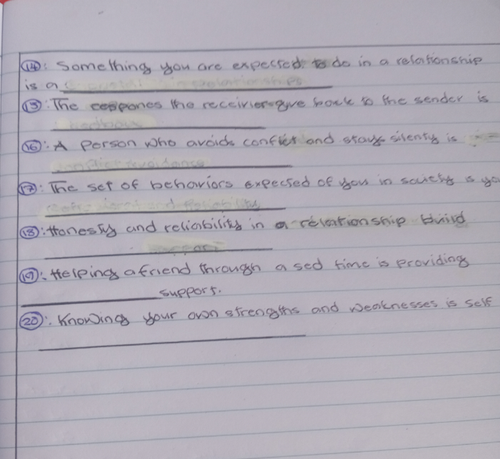 (14): Something you are expected to do in a relationship
is a relationships
(15): The respones the receivier give back to the sender is
feedback
(16): A person who avoids conflict and stays silently is
conflict avoidance
(17): The set of behaviors expected of you in society is yo
and reliability
(18): Honesty and reliability in a relationship build
support
(19): Helping a friend through a sed time is providing
support.
(20): Knowing your own strengths and weaknesses is self